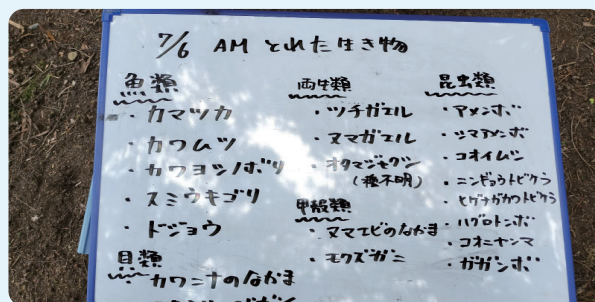 7/6 AM とれた生き物
魚類
・カマツカ
・カワムツ
・カワヨシノボリ
・スミウキゴリ
・ドジョウ
貝類
・カワニナのなかま
両生類
・ツチガエル
・ヌマガエル
・オタマジャクシ
(種不明)
甲殻類
・ヌマエビのなかま
・モクズガニ
昆虫類
・アメンボ
・シマアメンボ
・コオイムシ
・ニンギョウトビケラ
・ヒゲナガカワトビケラ
・ハグロトンボ
・コオニヤンマ
・ガガンボ